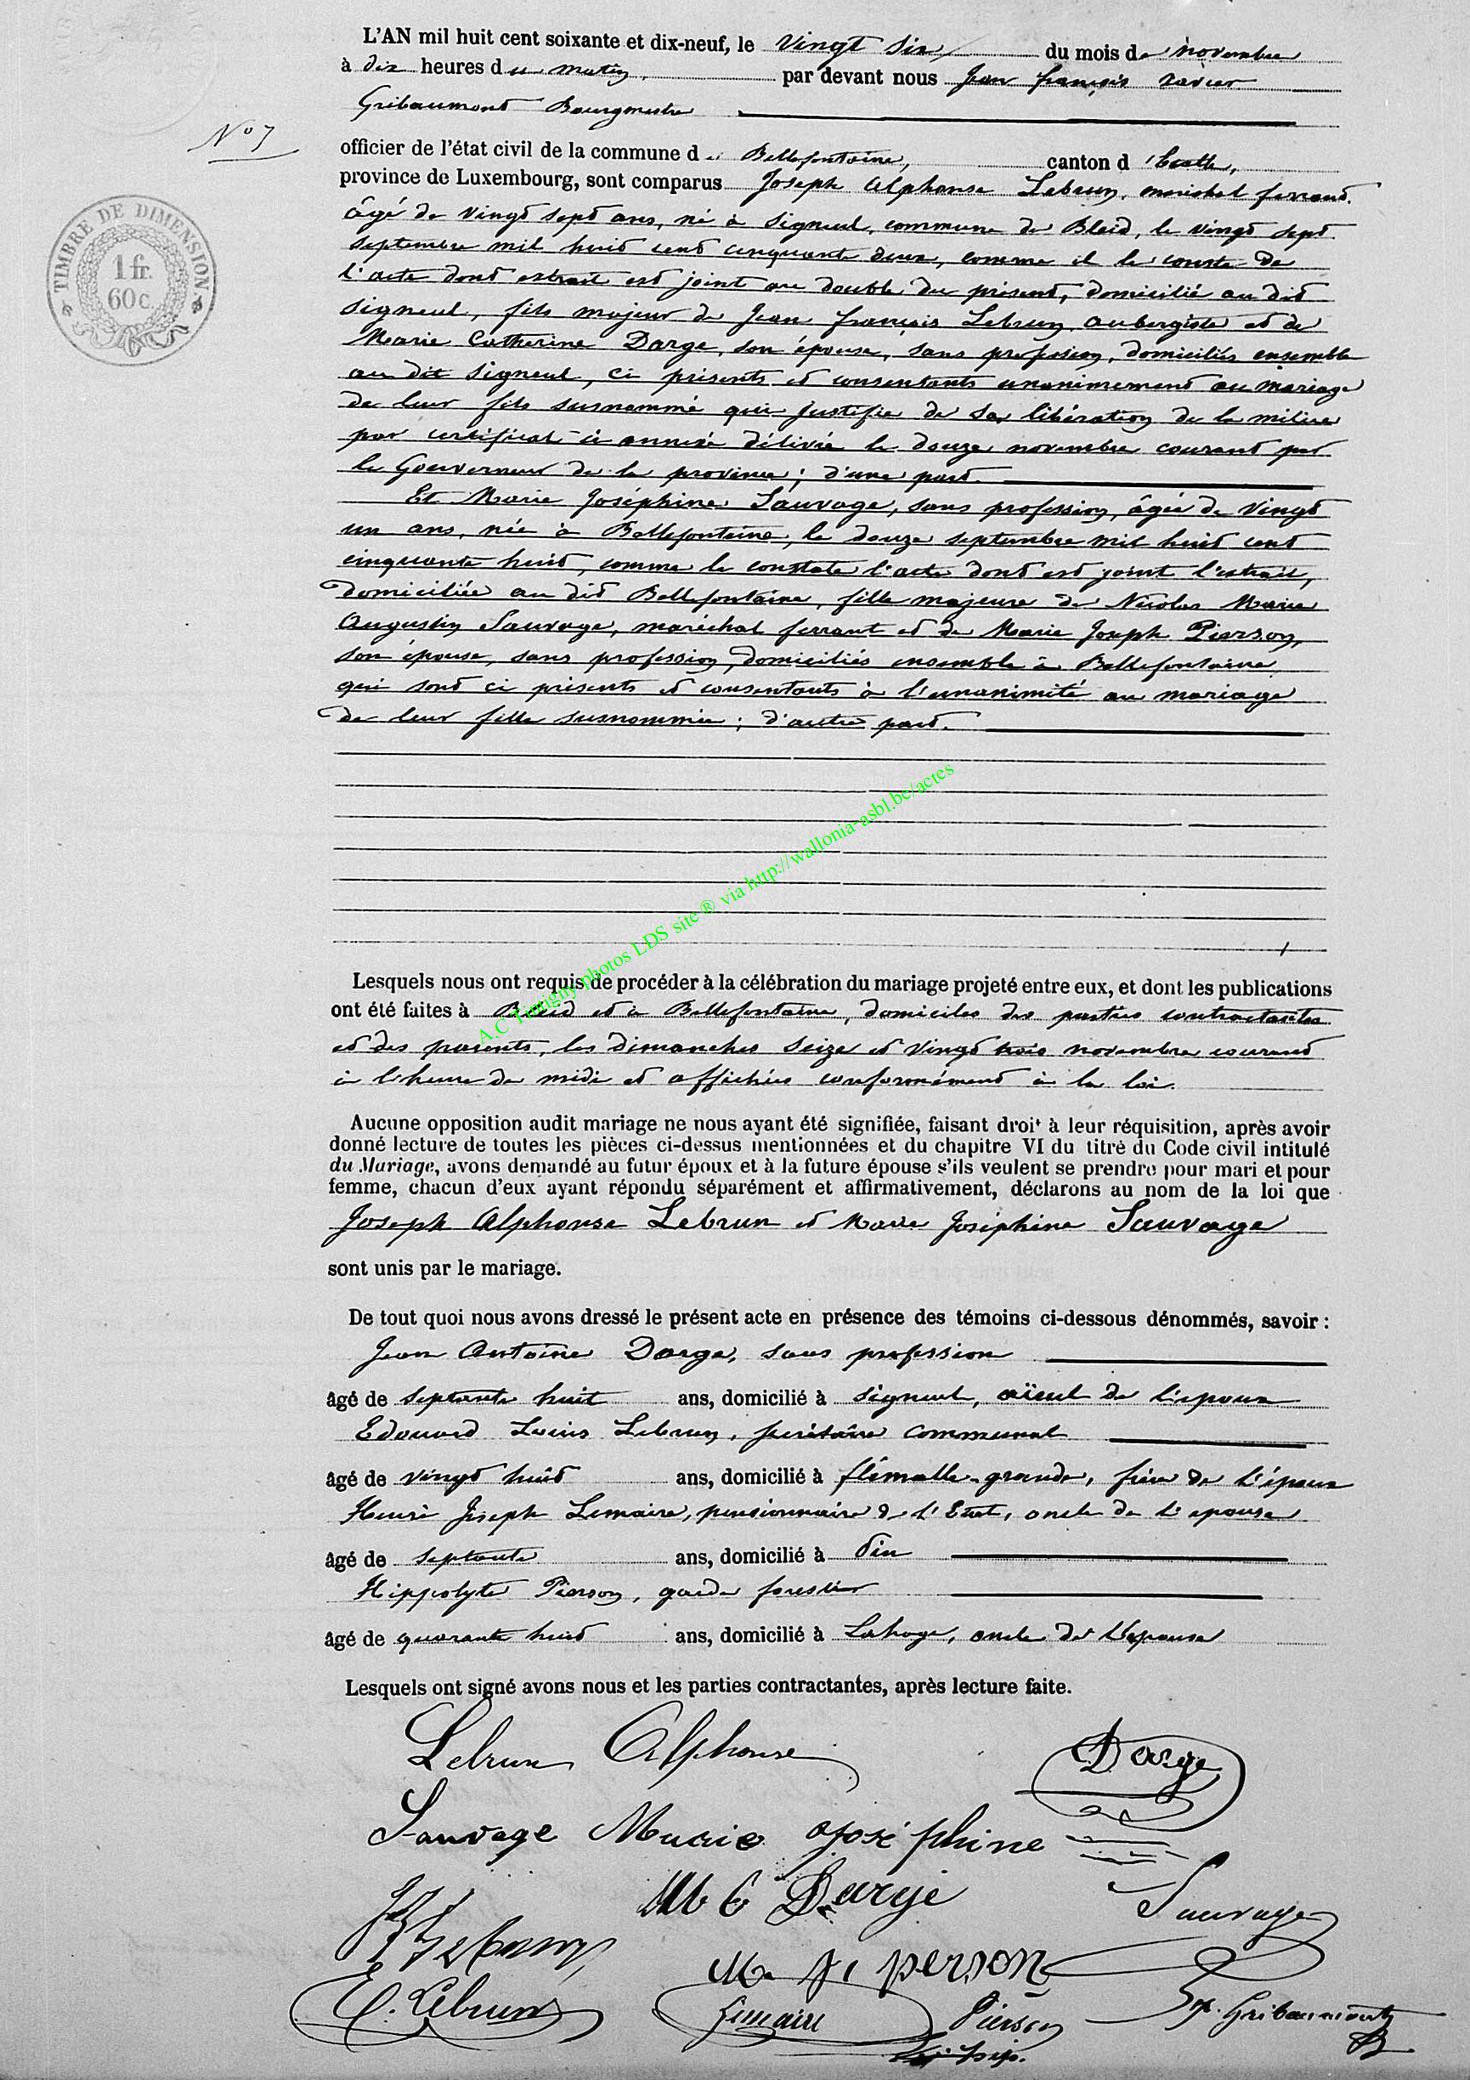 L'AN mil huit cent soixante et dix-neuf, le vingt six du mois de novembre
à dix heures du matin, par devant nous Jean françois xavier
Gribaumont Bourgmestre
N° 7
officier de l'état civil de la commune de Bellefontaine, canton d'Etalle,
province de Luxembourg, sont comparus Joseph Alphonse Lebrun, maréchal ferrand.
âgé de vingt sept ans, né à Signeul, commune de Bleid, le vingt sept
septembre mil huit cent cinquante deux, comme il le conste de
l'acte dont extrait est joint au double du présent, domicilié au dit
Signeul, fils majeur de Jean françois Lebrun, aubergiste et de
Marie Catherine Darge, son épouse, sans profession, domiciliés ensemble
au dit Signeul, ci présents et consentants unanimement au mariage
de leur fils susnommé qui justifie de sa libération de la milice
par certificat ci annexé délivré le douze novembre courant par
le Gouverneur de la province; d'une part.
Et Marie Joséphine Sauvage, sans profession, âgée de vingt
un ans, née à Bellefontaine, le douze septembre mil huit cent
cinquante huit, comme le constate l'acte dont est joint l'extrait,
domiciliée au dit Bellefontaine, fille majeure de Nicolas Marie
Augustin Sauvage, maréchal ferrant et de Marie Joseph Pierson,
son épouse, sans profession, domiciliés ensemble à Bellefontaine
qui sont ci présents et consentants à l'unanimité au mariage
de leur fille susnommée; d'autre part.
TIMBRE DE DIMENSION
1 fr.
60 c.
A.C Tintigny photos LDS site ® via http://wallonia-asbl.be/actes
Lesquels nous ont requis de procéder à la célébration du mariage projeté entre eux, et dont les publications
ont été faites à Bleid et à Bellefontaine, domiciles des parties contractantes
et des parents, les Dimanches seize et vingt trois novembre courant
à l'heure de midi et affichées conformément à la loi.
Aucune opposition audit mariage ne nous ayant été signifiée, faisant droit à leur réquisition, après avoir
donné lecture de toutes les pièces ci-dessus mentionnées et du chapitre VI du titre du Code civil intitulé
du Mariage, avons demandé au futur époux et à la future épouse s'ils veulent se prendre pour mari et pour
femme, chacun d'eux ayant répondu séparément et affirmativement, déclarons au nom de la loi que
Joseph Alphonse Lebrun et Marie Joséphine Sauvage
sont unis par le mariage.
De tout quoi nous avons dressé le présent acte en présence des témoins ci-dessous dénommés, savoir :
Jean Antoine Darge, sans profession
âgé de septante huit ans, domicilié à Signeul, aïeul de l'époux
Edouard Louis Lebrun, secrétaire communal
âgé de vingt huit ans, domicilié à flémalle-grande, frère de l'époux
Henri Joseph Lemaire, pensionnaire de l'Etat, oncle de l'épouse
âgé de septante ans, domicilié à Tin
Hippolyte Pierson, garde forestier
âgé de quarante huit ans, domicilié à Lahage, oncle de l'épouse
Lesquels ont signé avons nous et les parties contractantes, après lecture faite.
Lebrun Alphonse
Darge
Sauvage Marie José phine
M C Darge
Sauvage
Lebrun
M J pierson
E. Lebrun
Lemaire
Pierson
Gribaumont